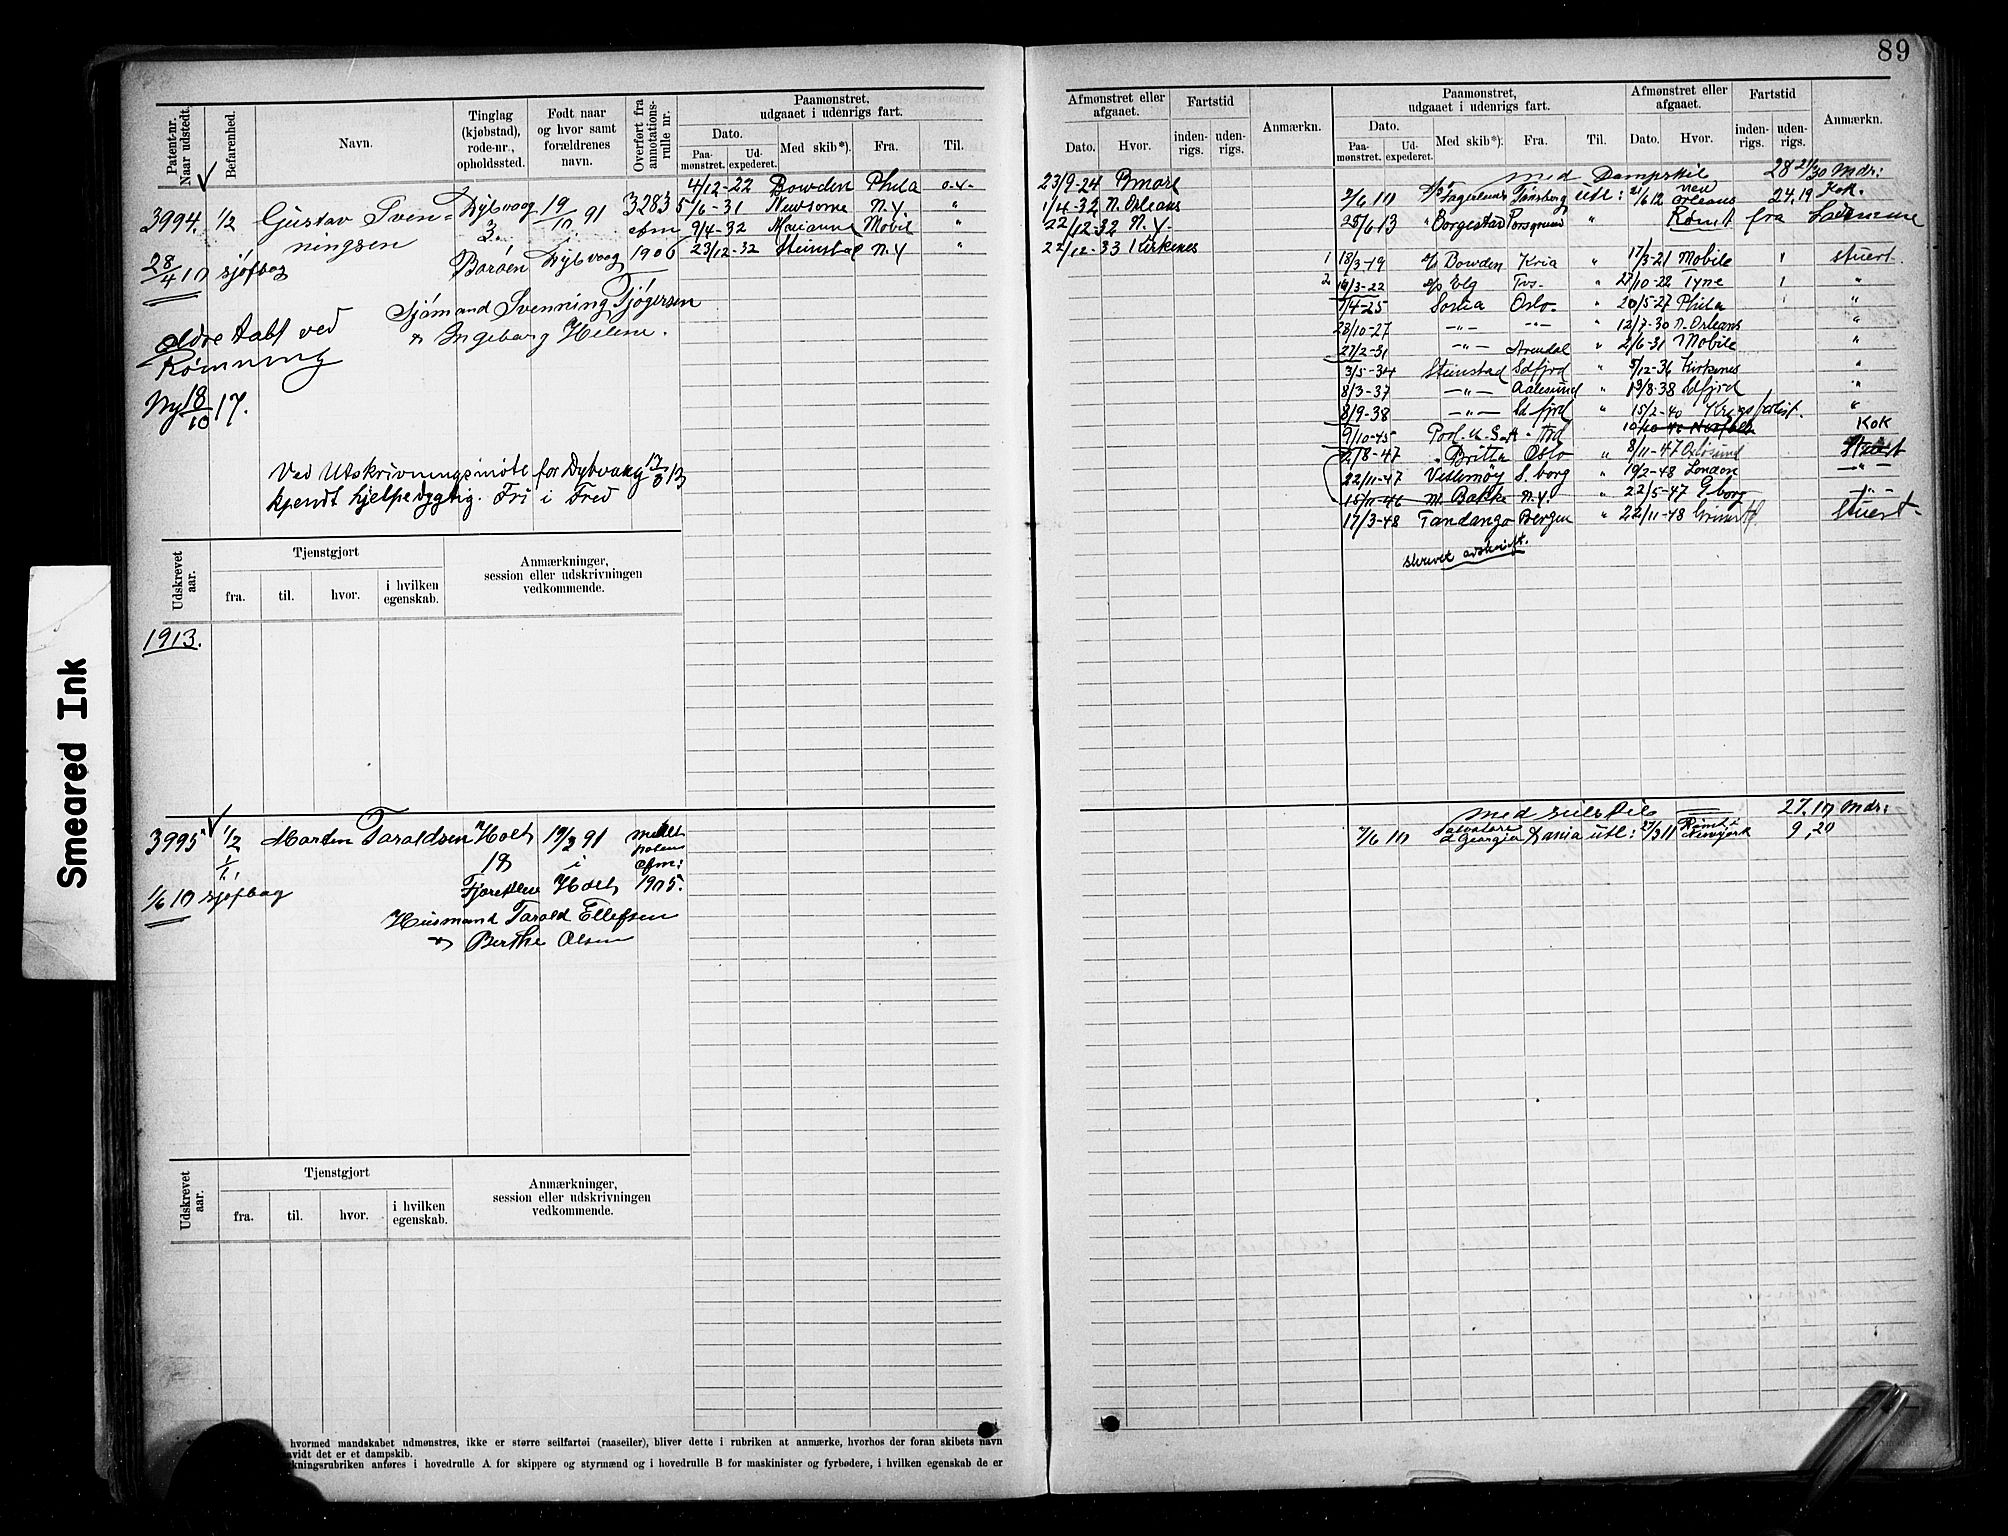 89
Smeared Ink
Patent-nr. Naar udstedt.
Befarenhed.
Navn.
Tinglag (kjøbstad), rode-nr., opholdssted.
Født naar og hvor samt forældrenes navn.
Overført fra annotations-rulle nr.
Paamønstret, udgaaet i udenrigs fart.
Dato.
Paa-mønstret.
Ud-expederet.
Med skib*).
Fra.
Til.
3994. 1/2 Gustav Sven-
ningsen
28/4 10 sjøfbog
Dybvaag 3.
Borøen
19/10 91
Dybvaag
3283
1906
Sjømand Svenning Tjøgersen
& Ingeborg Helene.
ældre tabt ved
Rømning
Ny 18/10 17.
Ved Udskrivningsmøte for Dybvaag
kjendt hjelpedygtig. Fri i Fred
4/12-22 Bowden Phila
5/6-31 Newsome N.Y. "
9/4-32 Marianne Mobil "
23/12-32 Steinstad N.Y "
Udskrevet aar.
Tjenstgjort
fra.
til.
hvor.
i hvilken egenskab.
Anmærkninger, session eller udskrivningen vedkommende.
1913.
3995 1/2 Morten Taraldsen Holt 17/2 91
1/1
18 i
1/6 10 sjøfbog Holt 1905.
Husmand Tarald Ellefsen
& Berthe Olsen
Udskrevet aar.
Tjenstgjort
fra.
til.
hvor.
i hvilken egenskab.
Anmærkninger, session eller udskrivningen vedkommende.
hvormed mandskabet udmønstres, ikke er større seilfartøi (raaseiler), bliver dette i rubriken at anmærke, hvorhos der foran skibets navn
avidt det er et dampskib.
kningsrubriken anføres i hovedrulle A for skippere og styrmænd og i hovedrulle B for maskinister og fyrbødere, i hvilken egenskab de er
Afmønstret eller afgaaet.
Dato.
Hvor.
Fartstid
inden-rigs.
uden-rigs.
Anmærkn.
Paamønstret, udgaaet i udenrigs fart.
Dato.
Paa-mønstret.
Ud-expederet.
Med skib*).
Fra.
Til.
Afmønstret eller afgaaet.
Dato.
Hvor.
Fartstid
inden-rigs.
uden-rigs.
Anmærkn.
23/9-24
1/4-32 N. Orleans
22/12-32 N.Y.
22/12-33 Kirkenes
med Dampskib 28 21/30 Mdr:
2/6 10 Tønsberg utl: 21/6 12 new orleans 24.19 Kok.
25/6 13 " Borgestad Porsgrund " Rømt fra Samme
1 18/3-19 Bowden Kria " 17/3-21 Mobile stuert
2 19/3-22 Elg Tvs- " 27/10-22 Tyne "
7/4-25 Sonia Oslo " 20/5-27 Phila "
28/10-27 -"- -"- " 12/7-30 N. Orleans "
27/2-31 -"- Arendal " 2/6-31 Mobile "
3/5-34 Steinstad Sdfjrd " 5/12-36 Kirkenes "
8/3-37 -"- Aalesund " 19/8-38 Sdfjrd "
8/9-38 -"- Sdfjrd " 15/2-40 Krigsforlist. "
9/10-45 Kok
2/8-47 " Britta Oslo " 8/11-47 Stuert
22/11-47 Vestmøy S.borg " 19/2-48 London -"-
15/11-46 M. Bakke N.Y " 22/5-47 G borg
17/3-48 Fandango Bergen " 22/11-48 Stuert
skrevet avskrift.
med seilskib 27.10 mdr:
7/6 10 Salvatore utl: 27/3 11 Rømt i Newyork 9,20